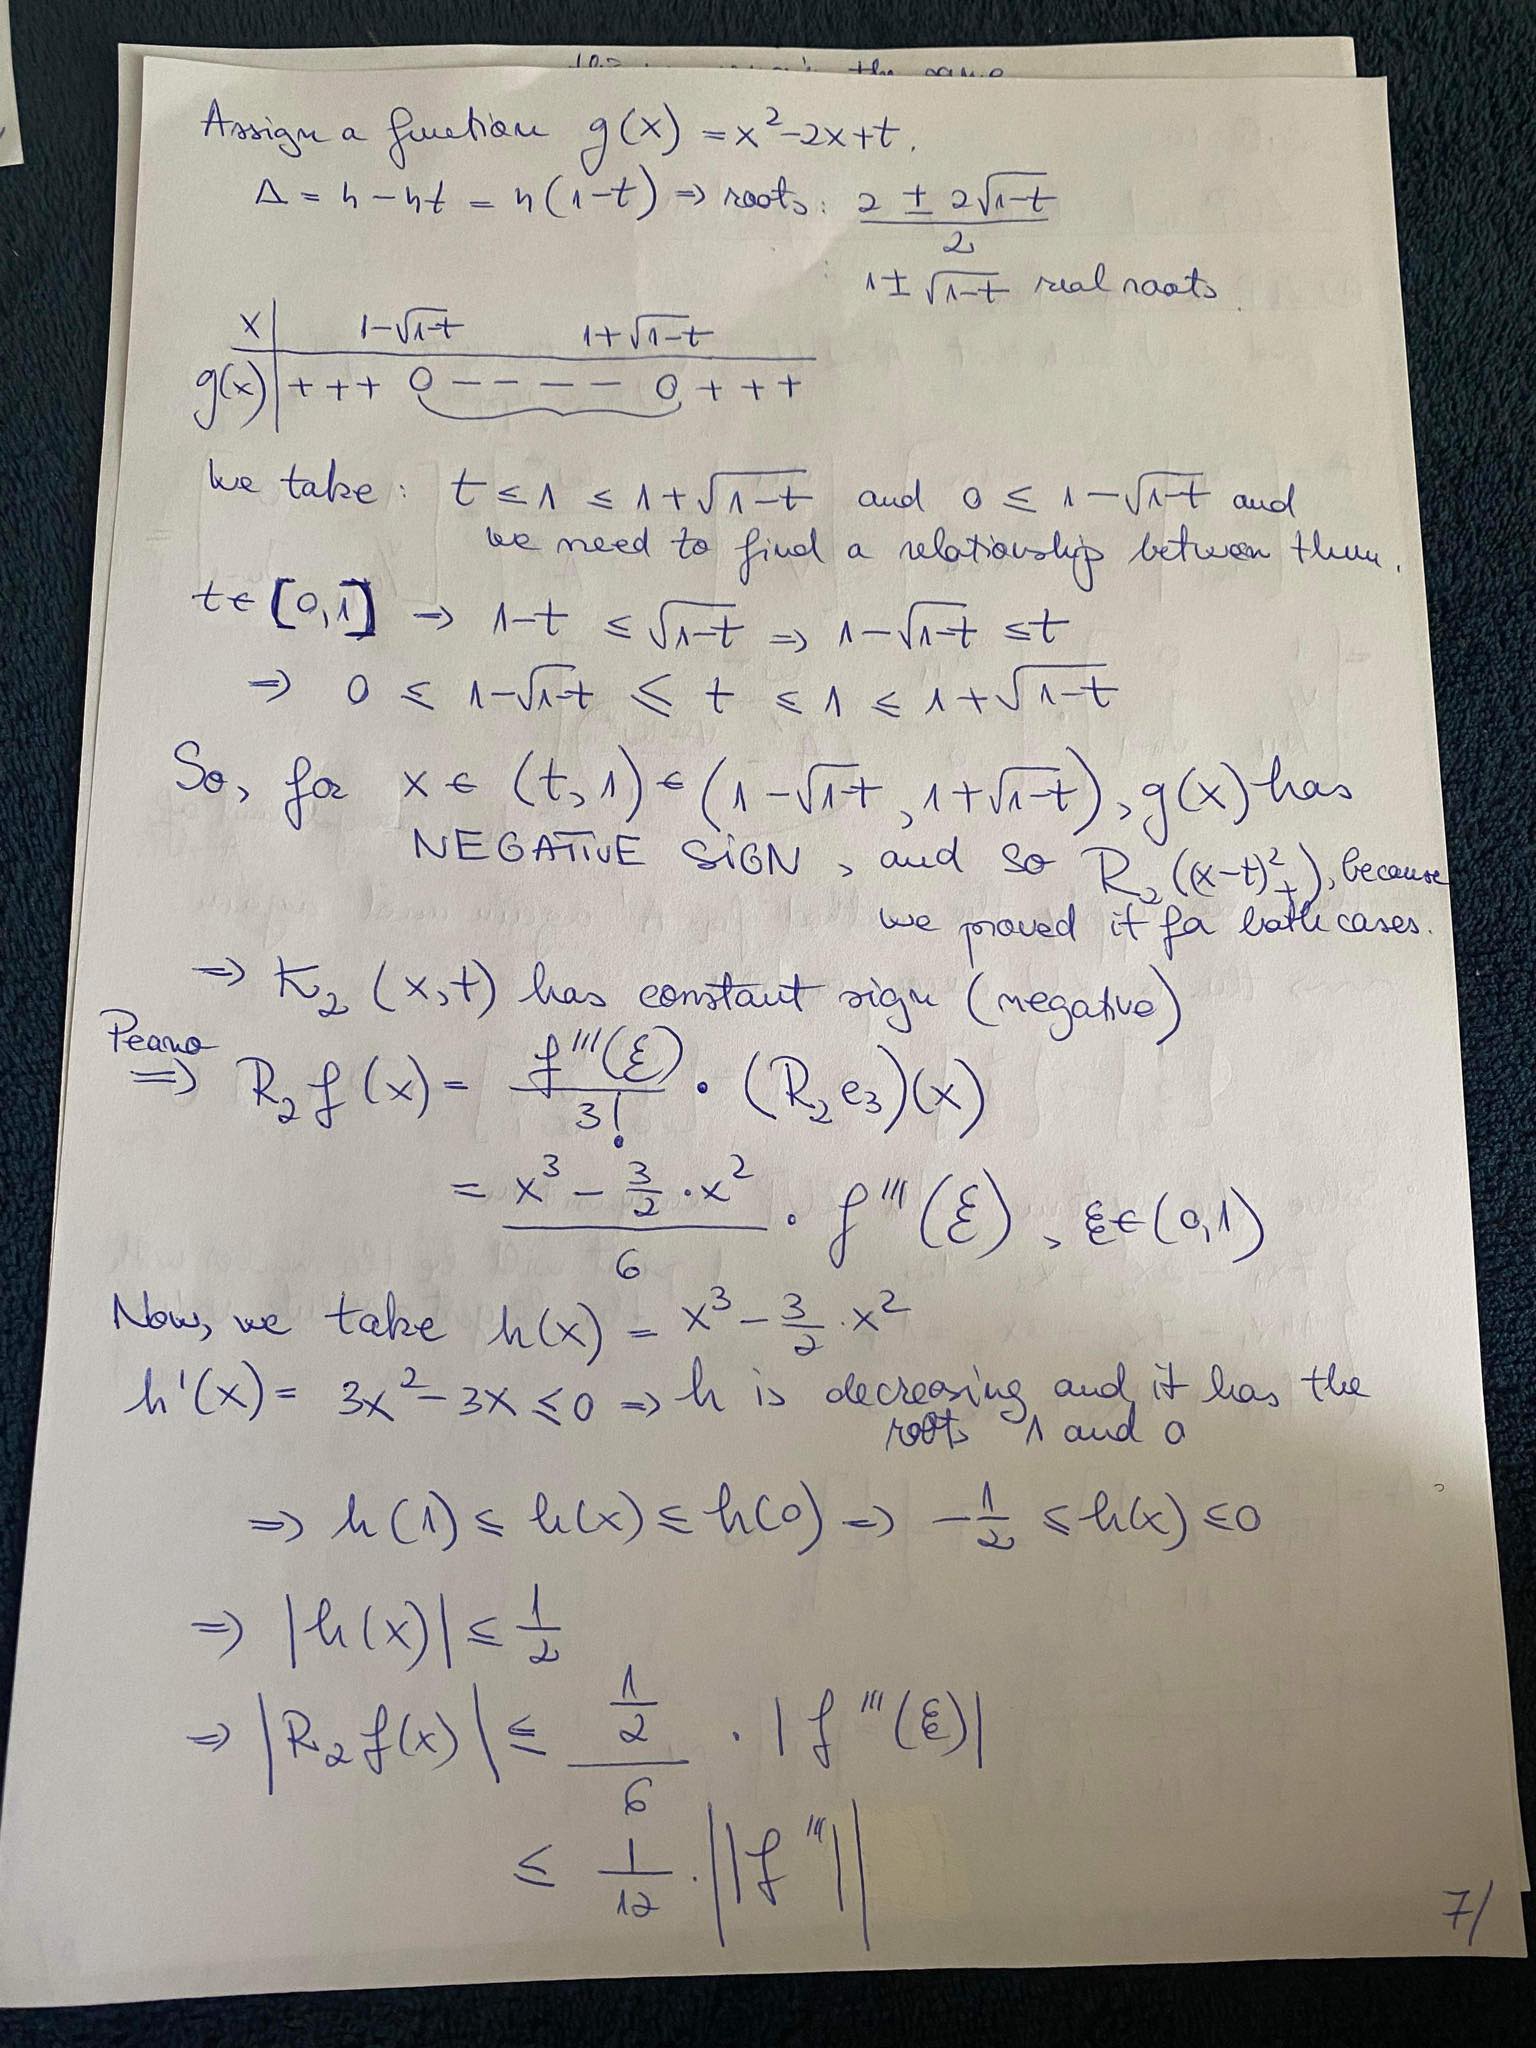 the same
Assign a function g(x) = x²-2x+t.
Δ = 4-4t = 4(1-t) ⇒ roots: (2 ± 2√(1-t))/2
: 1±√(1-t) real roots
x | 1-√(1-t) 1+√(1-t)
g(x) | + + + 0 - - - - 0 + + +
we take: t ≤ 1 ≤ 1+√(1-t) and 0 ≤ 1-√(1-t) and
we need to find a relationship between them.
t∈[0,1] ⇒ 1-t ≤ √(1-t) ⇒ 1-√(1-t) ≤ t
⇒ 0 ≤ 1-√(1-t) ≤ t ≤ 1 ≤ 1+√(1-t)
So, for x ∈ (t,1) ∈ (1-√(1-t), 1+√(1-t)), g(x) has
NEGATIVE SIGN, and so R₂((x-t)²₊), because
we proved it for both cases.
⇒ K₂(x,t) has constant sign (negative)
Peano
⇒ R₂f(x) = f'''(ξ)/3! · (R₂e₃)(x)
= (x³ - 3/2 · x²)/6 · f'''(ξ), ξ∈(0,1)
Now, we take h(x) = x³ - 3/2 · x²
h'(x) = 3x²-3x ≤ 0 ⇒ h is decreasing and it has the
roots 1 and 0
⇒ h(1) ≤ h(x) ≤ h(0) ⇒ -1/2 ≤ h(x) ≤ 0
⇒ |h(x)| ≤ 1/2
⇒ |R₂f(x)| ≤ (1/2)/6 · |f'''(ξ)|
≤ 1/12 · ||f'''||
7/